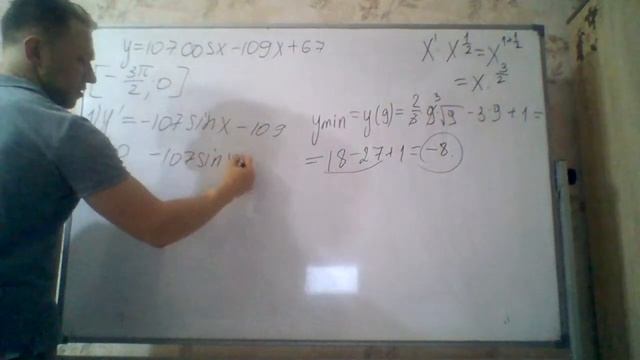 y=107cosx-109x+67
[-3π/2; 0]
1) y'=-107sinx-109
-107sin
x¹·x^{1/2}=x^{1+1/2}
=x^{3/2}
y min=y(9)=2/3·9³√9-3·9+1=
=18-27+1=-8.